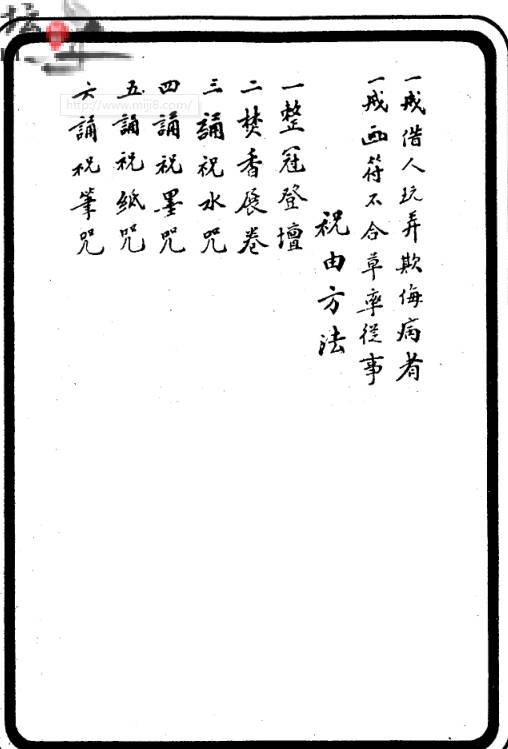 一戒借人玩弄欺侮病者
一戒画符不合草率從事
祝由方法
一整冠登壇
二焚香展卷
三誦祝水咒
四誦祝墨咒
五誦祝紙咒
六誦祝筆咒
http://www.miji8.com/